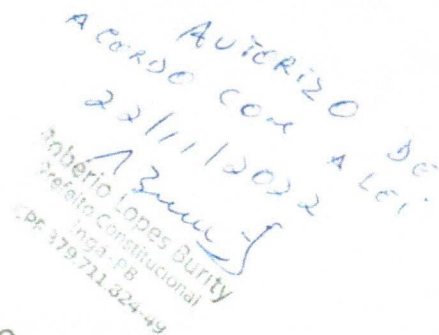 AUTORIZO DE
ACORDO COM A LEI
22/11/2022
Robério Lopes Burity
Prefeito Constitucional
Ingá - PB
CPF 379.711.824-49